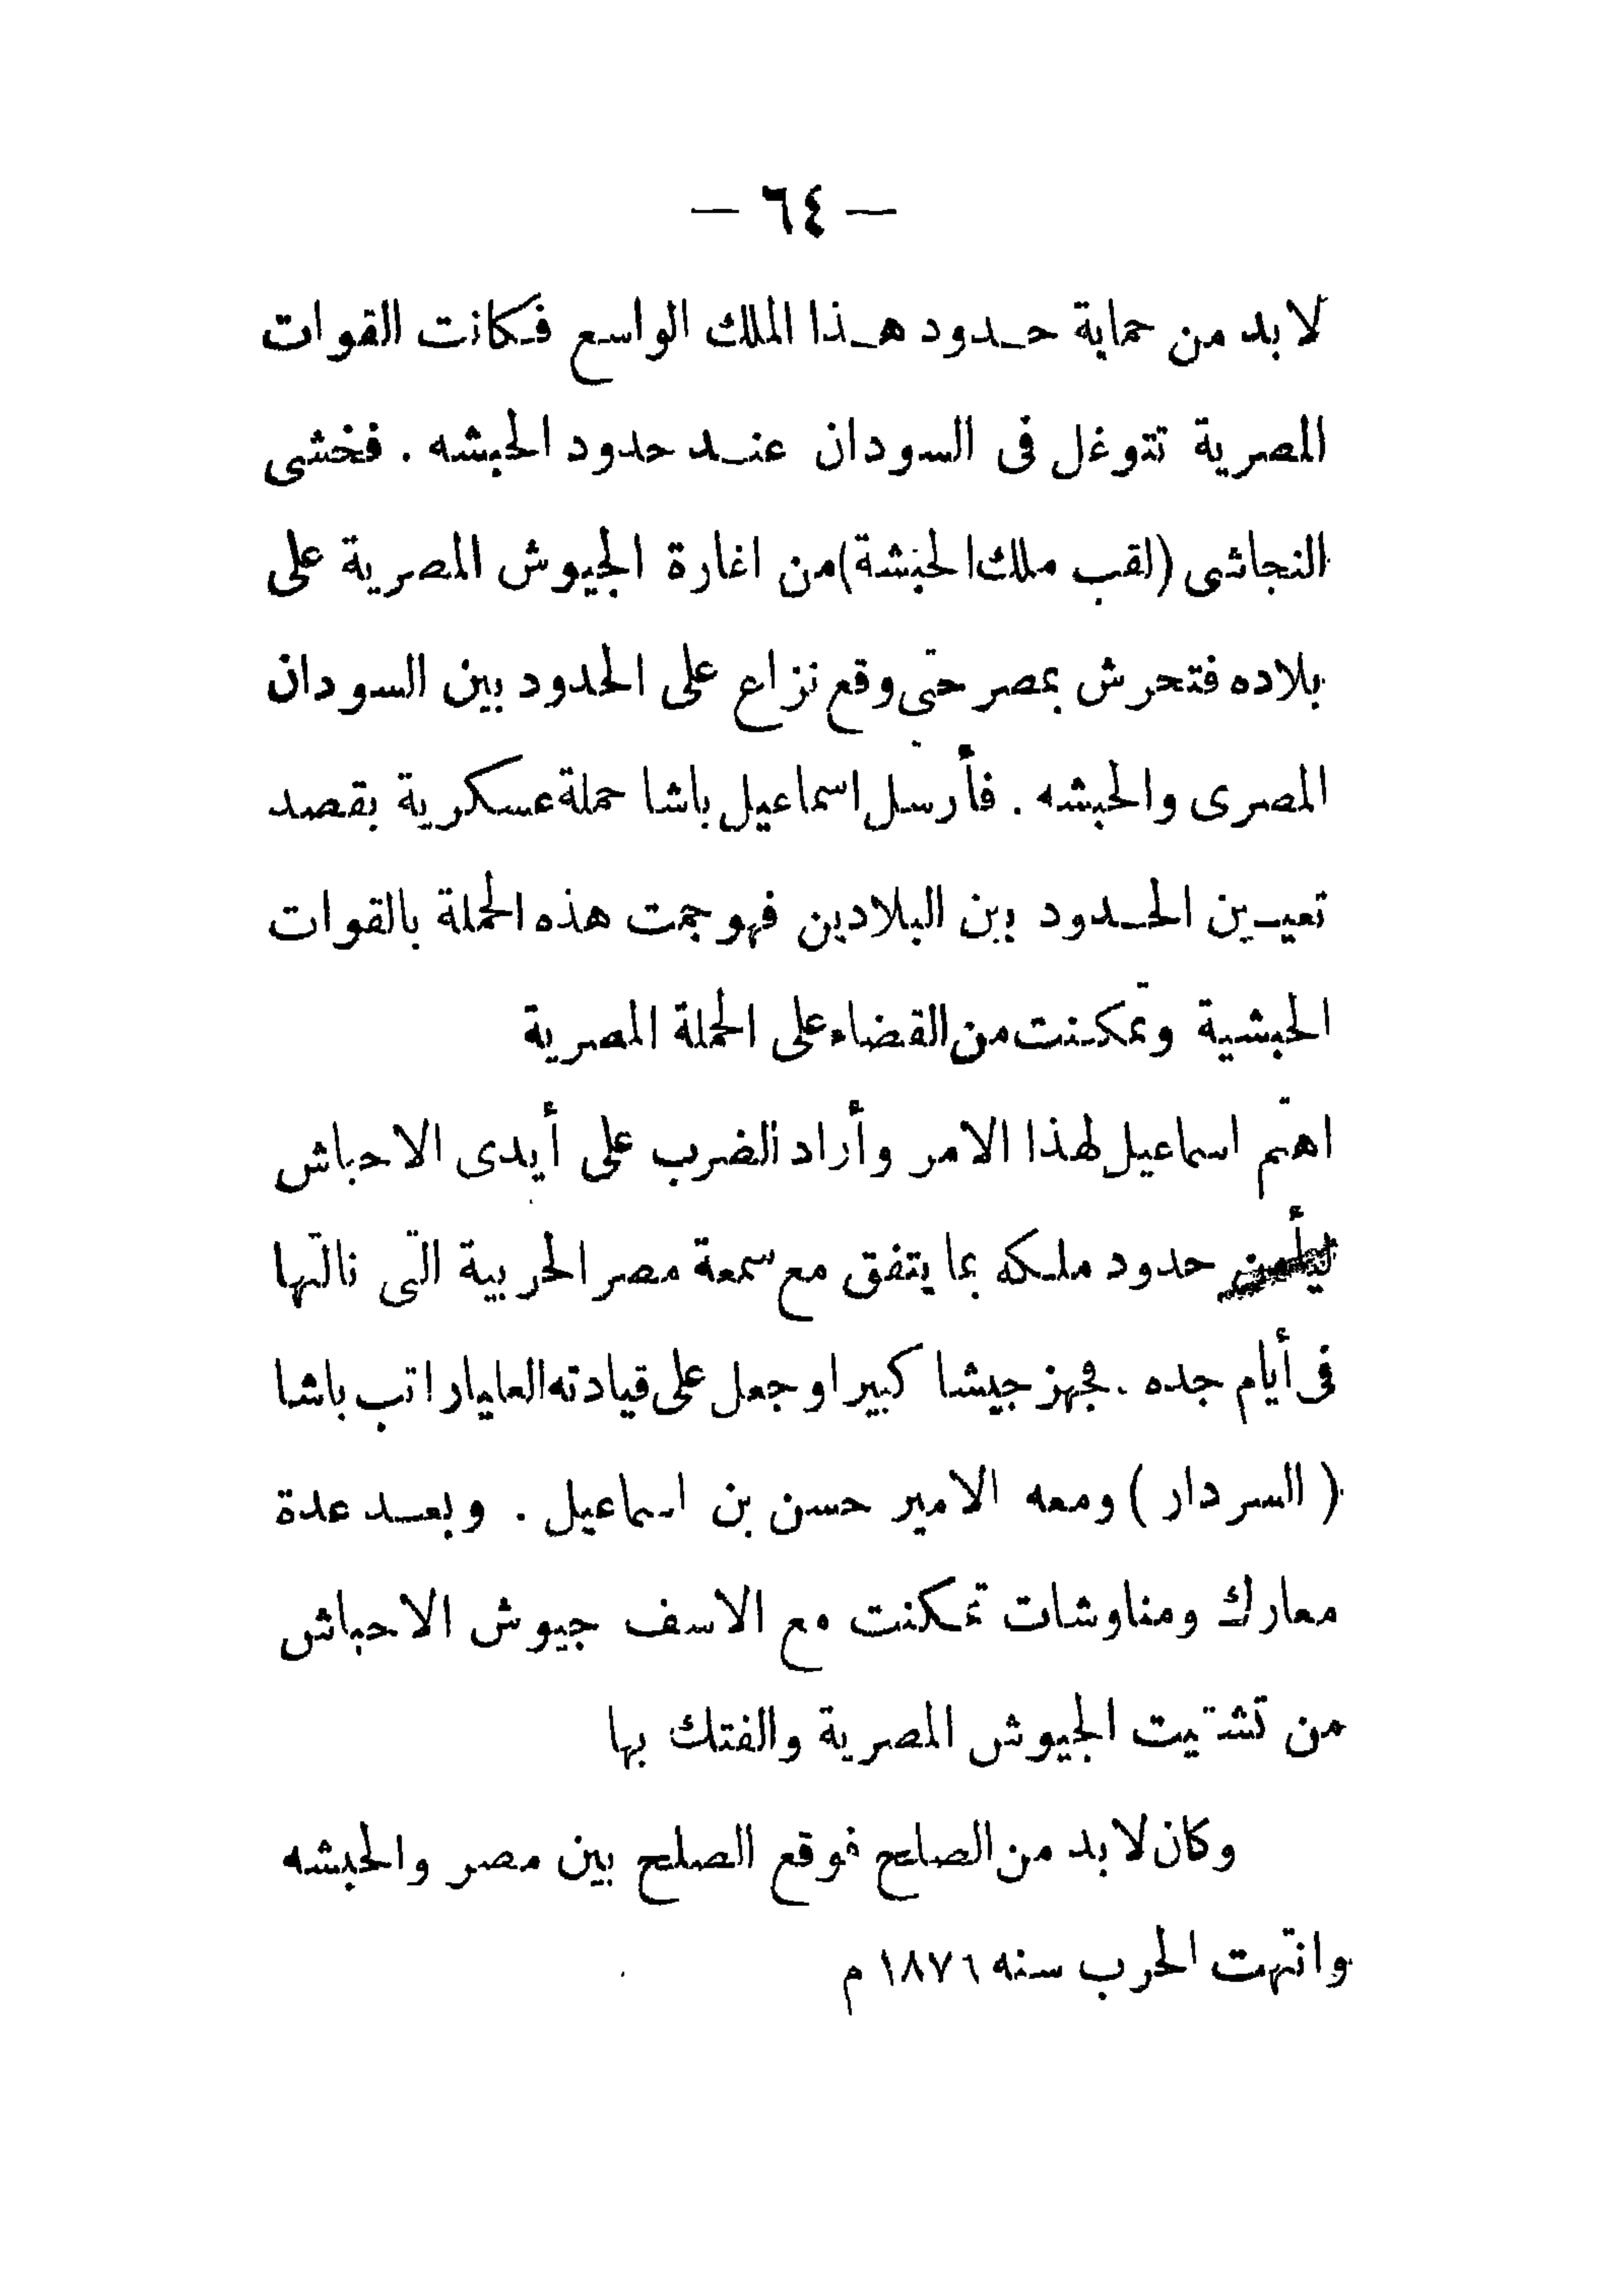 — ٦٤ —
لا بد من حماية حدود هذا الملك الواسع فكانت القوات
المصرية تتوغل فى السودان عند حدود الحبشه . فخشى
النجاشى (لقب ملك الحبشة) من اغارة الجيوش المصرية على
بلاده فتحرش بمصر حتى وقع نزاع على الحدود بين السودان
المصرى والحبشه . فأرسل اسماعيل باشا حملة عسكرية بقصد
تعيين الحدود بين البلادين فهوجمت هذه الحملة بالقوات
الحبشية وتمكنت من القضاء على الحملة المصرية
اهتم اسماعيل لهذا الامر وأراد الضرب على أيدى الاحباش
ليأمن حدود ملكه بما يتفق مع سمعة مصر الحربية التى نالتها
فى أيام جده . فجهز جيشا كبيرا وجعل على قيادته العليا راتب باشا
( السردار ) ومعه الامير حسن بن اسماعيل . وبعد عدة
معارك ومناوشات تمكنت مع الاسف جيوش الاحباش
من تشتيت الجيوش المصرية والفتك بها
وكان لا بد من الصلح فوقع الصلح بين مصر والحبشه
وانتهت الحرب سنه ١٨٧٦ م